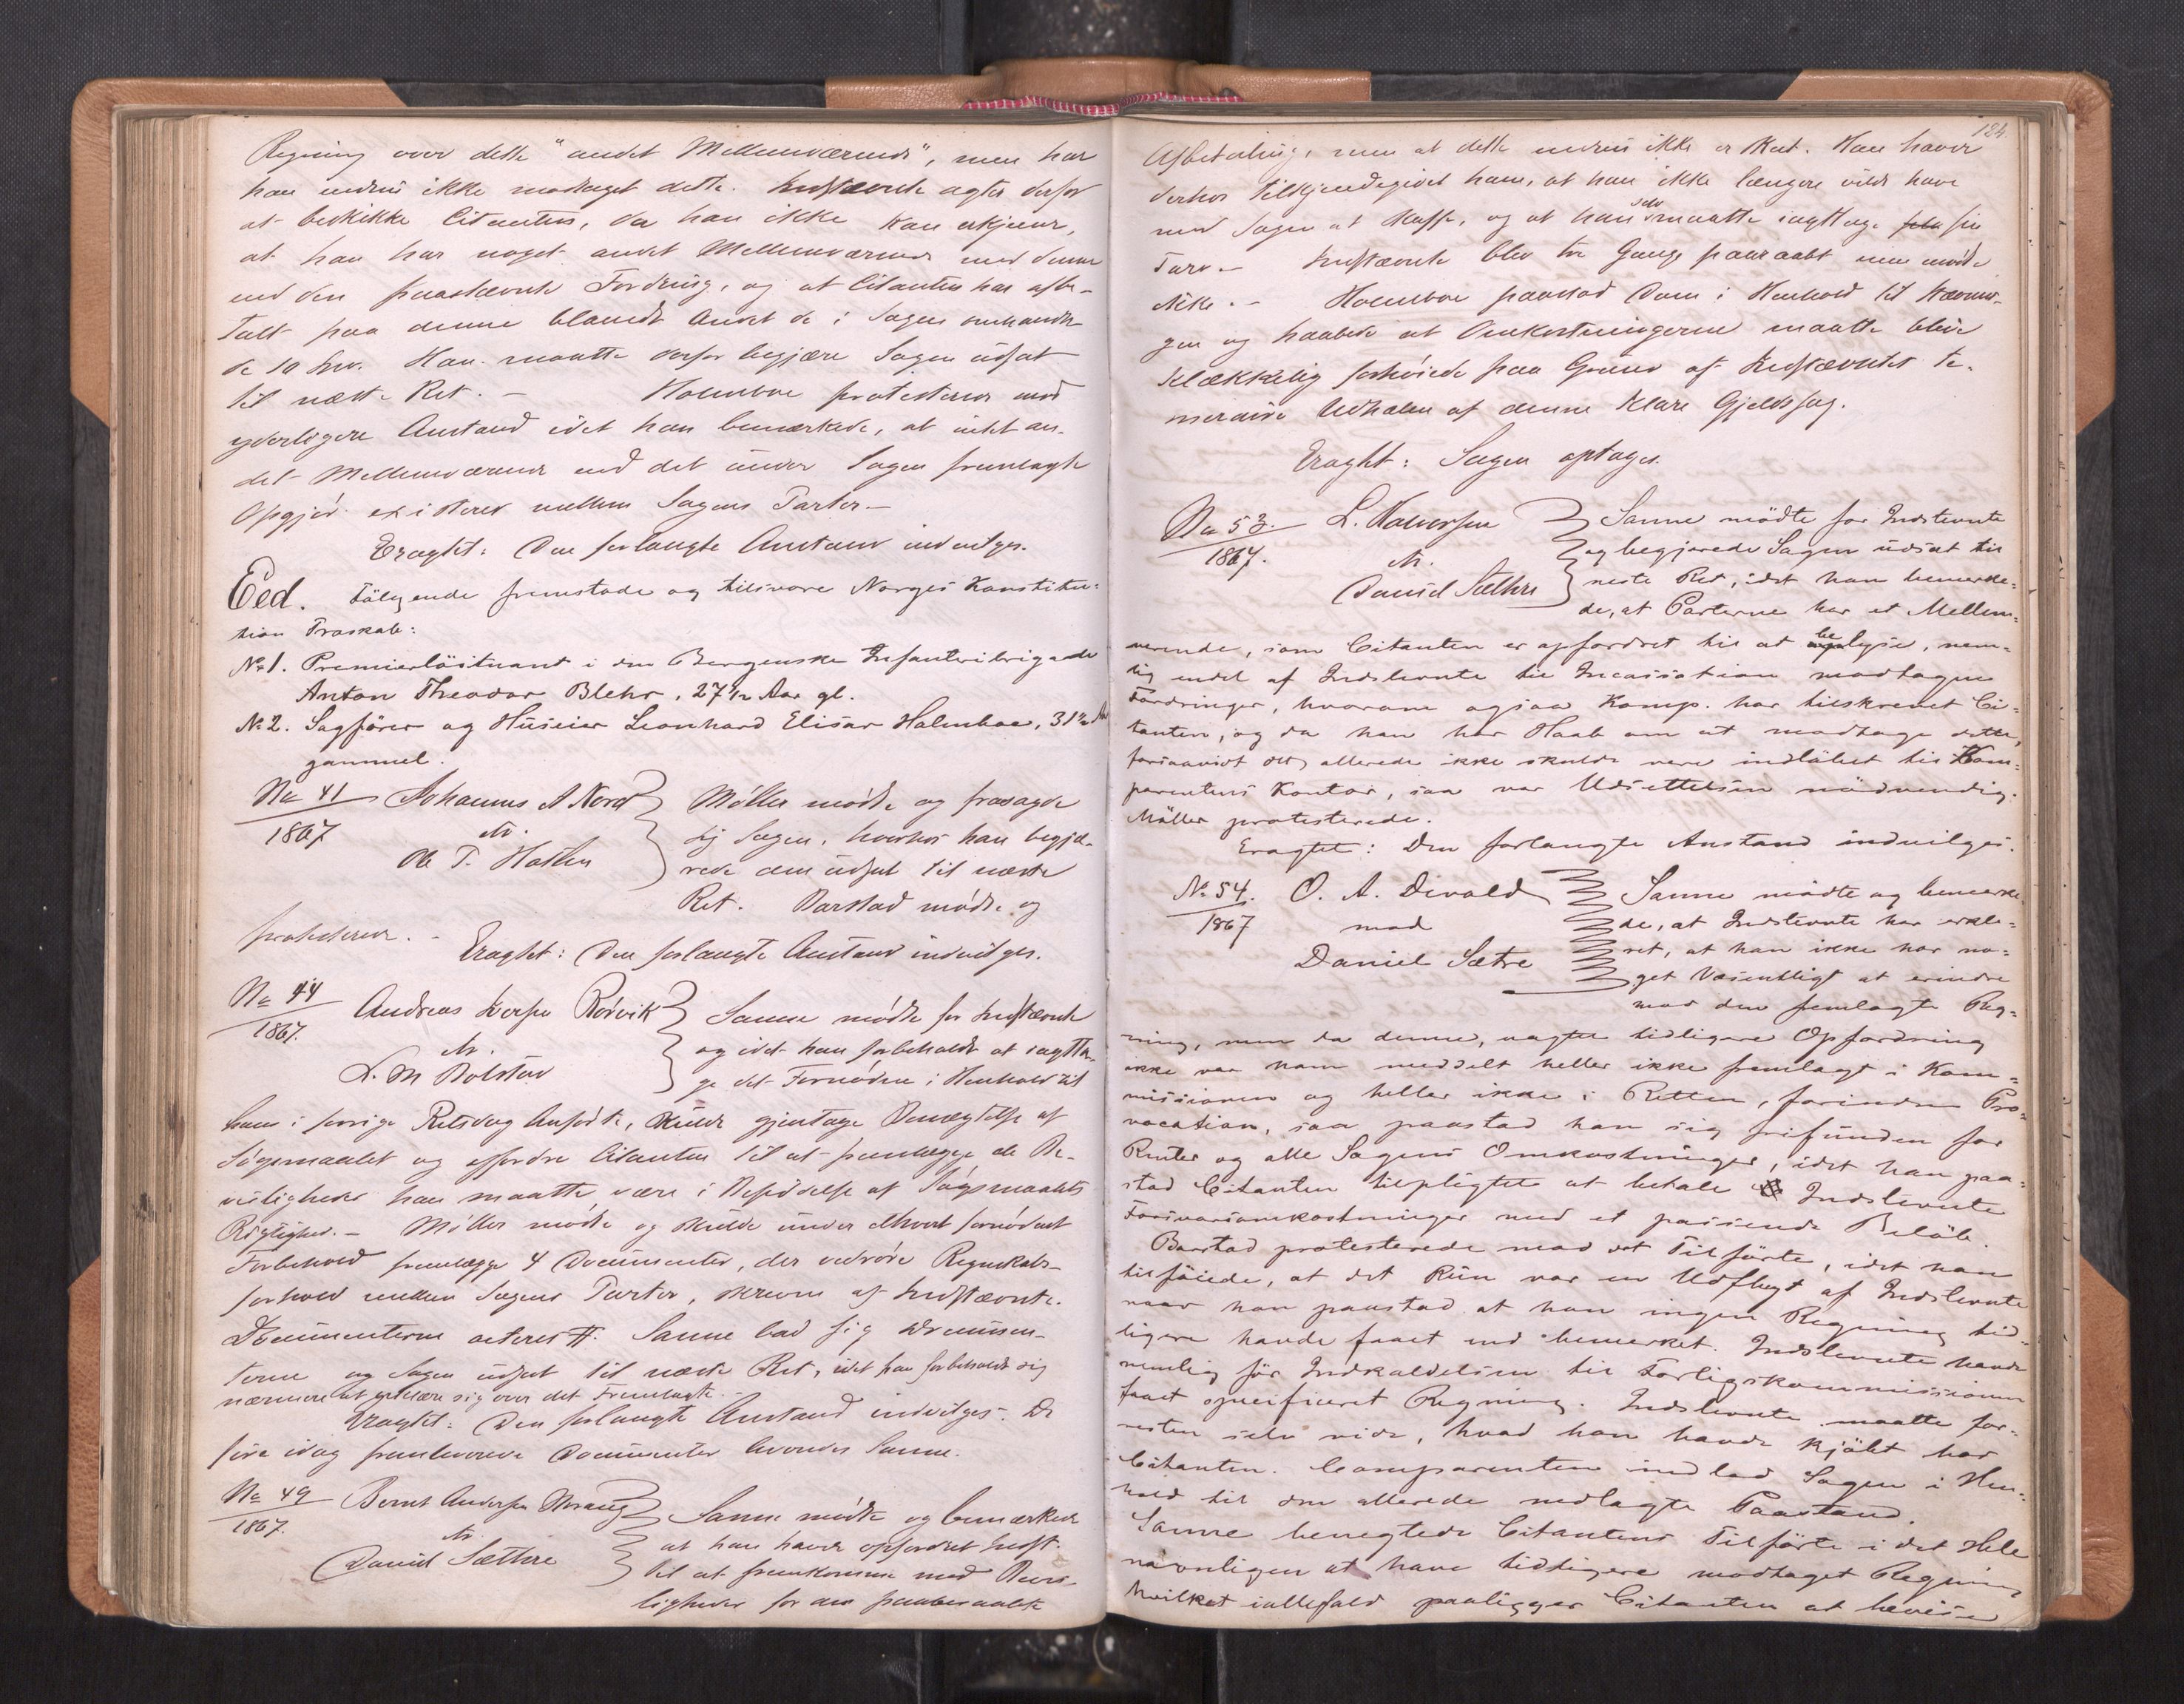 Regning over dette "andet Mellemværende", men har
han endnu ikke modtaget dette. Indstævnte agter derfor
at beskikke Citanten, da han ikke kan erkjende,
at han har noget andet Mellemværende med denne
end den paastævnte Fordring, og at Citanten har afbe-
talt paa denne blandt Andet de i Sagen omhandle-
de 10 Spd. Han maatte derfor begjære Sagen udsat
til næste Ret. – Holmboe protesterede mod
yderligere Anstand idet han bemærkede, at intet an-
det Mellemværende end det under Sagen fremlagte
Opgjør existerer mellem Sagens Parter. –
Eragtet: Den forlangte Anstand indvilges.
Eed. Følgende fremstode og tilsvore Norges Konstitu-
tion Troskab:
No 1. Premierlöitnant i den Bergenske Infanteribrigade
Anton Theodor Blehr, 27 1/2 Aar gl.
No 2. Sagförer og Huseier Leonhard Elisar Holmboe, 31 1/2 Aar
gammel.
No 41 Johannes A Nord Møller mødte og frasagde
1867 ctr. sig Sagen, hvorhos han begjæ-
Ole T. Hatlen rede den udsat til næste
Ret. Barstad mødte og
protesterede. –
Eragtet: Den forlangte Anstand indvilges.
No 44 Andreas Rørvik Sanne mødte for Indstævnte
1867. ctr. og idet han forbeholdt at iagtta-
L. M Bolstad ge det Fornødne i Henhold til
hans i forrige Retsdag Anførte, skulde gjentage Benægtelse af
Søgsmaalet og opfordre Citanten til at fremlægge de Be-
visligheder han maatte være i Besiddelse af Søgsmaalets
Rigtighed. – Møller mødte og skulde under ethvert fornødent
Forbehold fremlægge 4 Documenter, der vedrøre Regnskabs-
forhold mellem Sagens Parter, skrevne af Indstævnte.
Documenterne acteres #. Sanne bad sig Documen-
terne og Sagen udsat til næste Ret, idet han forbeholdt sig
nærmere at erklære sig over det Fremlagte. –
Eragtet: Den forlangte Anstand indvilges. De
fire idag fremleverede Documenter leveredes Sanne.
No 49 Bernt Andersen Sanne mødte og bemærkede
1867. ctr. at han havde opfordret Indst.
David Sæthre til at fremkomme med Bevis-
ligheder for den paaberaabte
184
Afbetaling, men at dette endnu ikke er skeet. Han havde
derhos tilkjendegivet ham, at han ikke længere vilde have
med Sagen at skaffe, og at han selv maatte iagttage sin
Tarv. – Indstævnte blev tre Gange paaraabt men mødte
ikke. – Holmboe paastod Dom i Henhold til Stævnin-
gen og haabede at Omkostningerne maatte blive
klækkelig forhøiede paa Grund af Indstævntes te-
meraire Udhalen af denne klare Gjeldssag.
Eragtet: Sagen optages.
No 53. L. Halvorsen Sanne mödte for Indstevnte
1867. ctr. og begjærede Sagen udsat til
David Sæthre neste Ret, idet han bemerke-
de, at Parterne har et Mellem-
verende, som Citanten er opfordret til at belyse, nem-
lig endel af Indstevnte til Incassation modtagne
Fordringer, hvorom ogsaa Komp. har tilskrevet Ci-
tanten, og da han har Haab om at modtage dette,
forsaavidt det allerede ikke skulde vere indlöbet til Kom-
parentens Kontor, saa var Udsettelsen nödvendig.
Möller protesterede.
Eragtet: Den forlangte Anstand indvilges.
No 54. O. A. Devold Sanne mödte og bemerke
1867 mod de, at Indstevnte har erkle-
Daniel Sætre ret, at han ikke har no-
get Væsentligt at erindre
mod den fremlagte Reg-
ning, men da denne, uagtet tidligere Opfordring
ikke var ham meddelt heller ikke fremlagt i Kom-
missionen og heller ikke i Retten, forinden Pro-
vocation, saa paastod han sig frifunden for
Renter og alle Sagens Omkostninger, idet han paa-
stod Citanten tilpligtet at betale Indstevnte
Forsvarsomkostninger med et passende Belöb.
Barstad protesterede mod det Tilförte, idet han
tilföiede, at det kun var en Udflugt af Indstevnte
naar han paastod at han ingen Regning tid-
ligere havde faaet end bemerket. Indstevnte havde
nemlig för Indkaldelsen til Forligskommissionen
faaet specificeret Regning. Indstevnte maatte for-
resten selv vide, hvad han havde kjöbt hos
Citanten. Comparenten indlod Sagen i Hen-
hold til den allerede nedlagte Paastand.
Sanne benegtede Citantens Tilförte i det Hele
navnligen at have tidligere modtaget Regning
hvilket iallefald paaligger Citanten at bevise